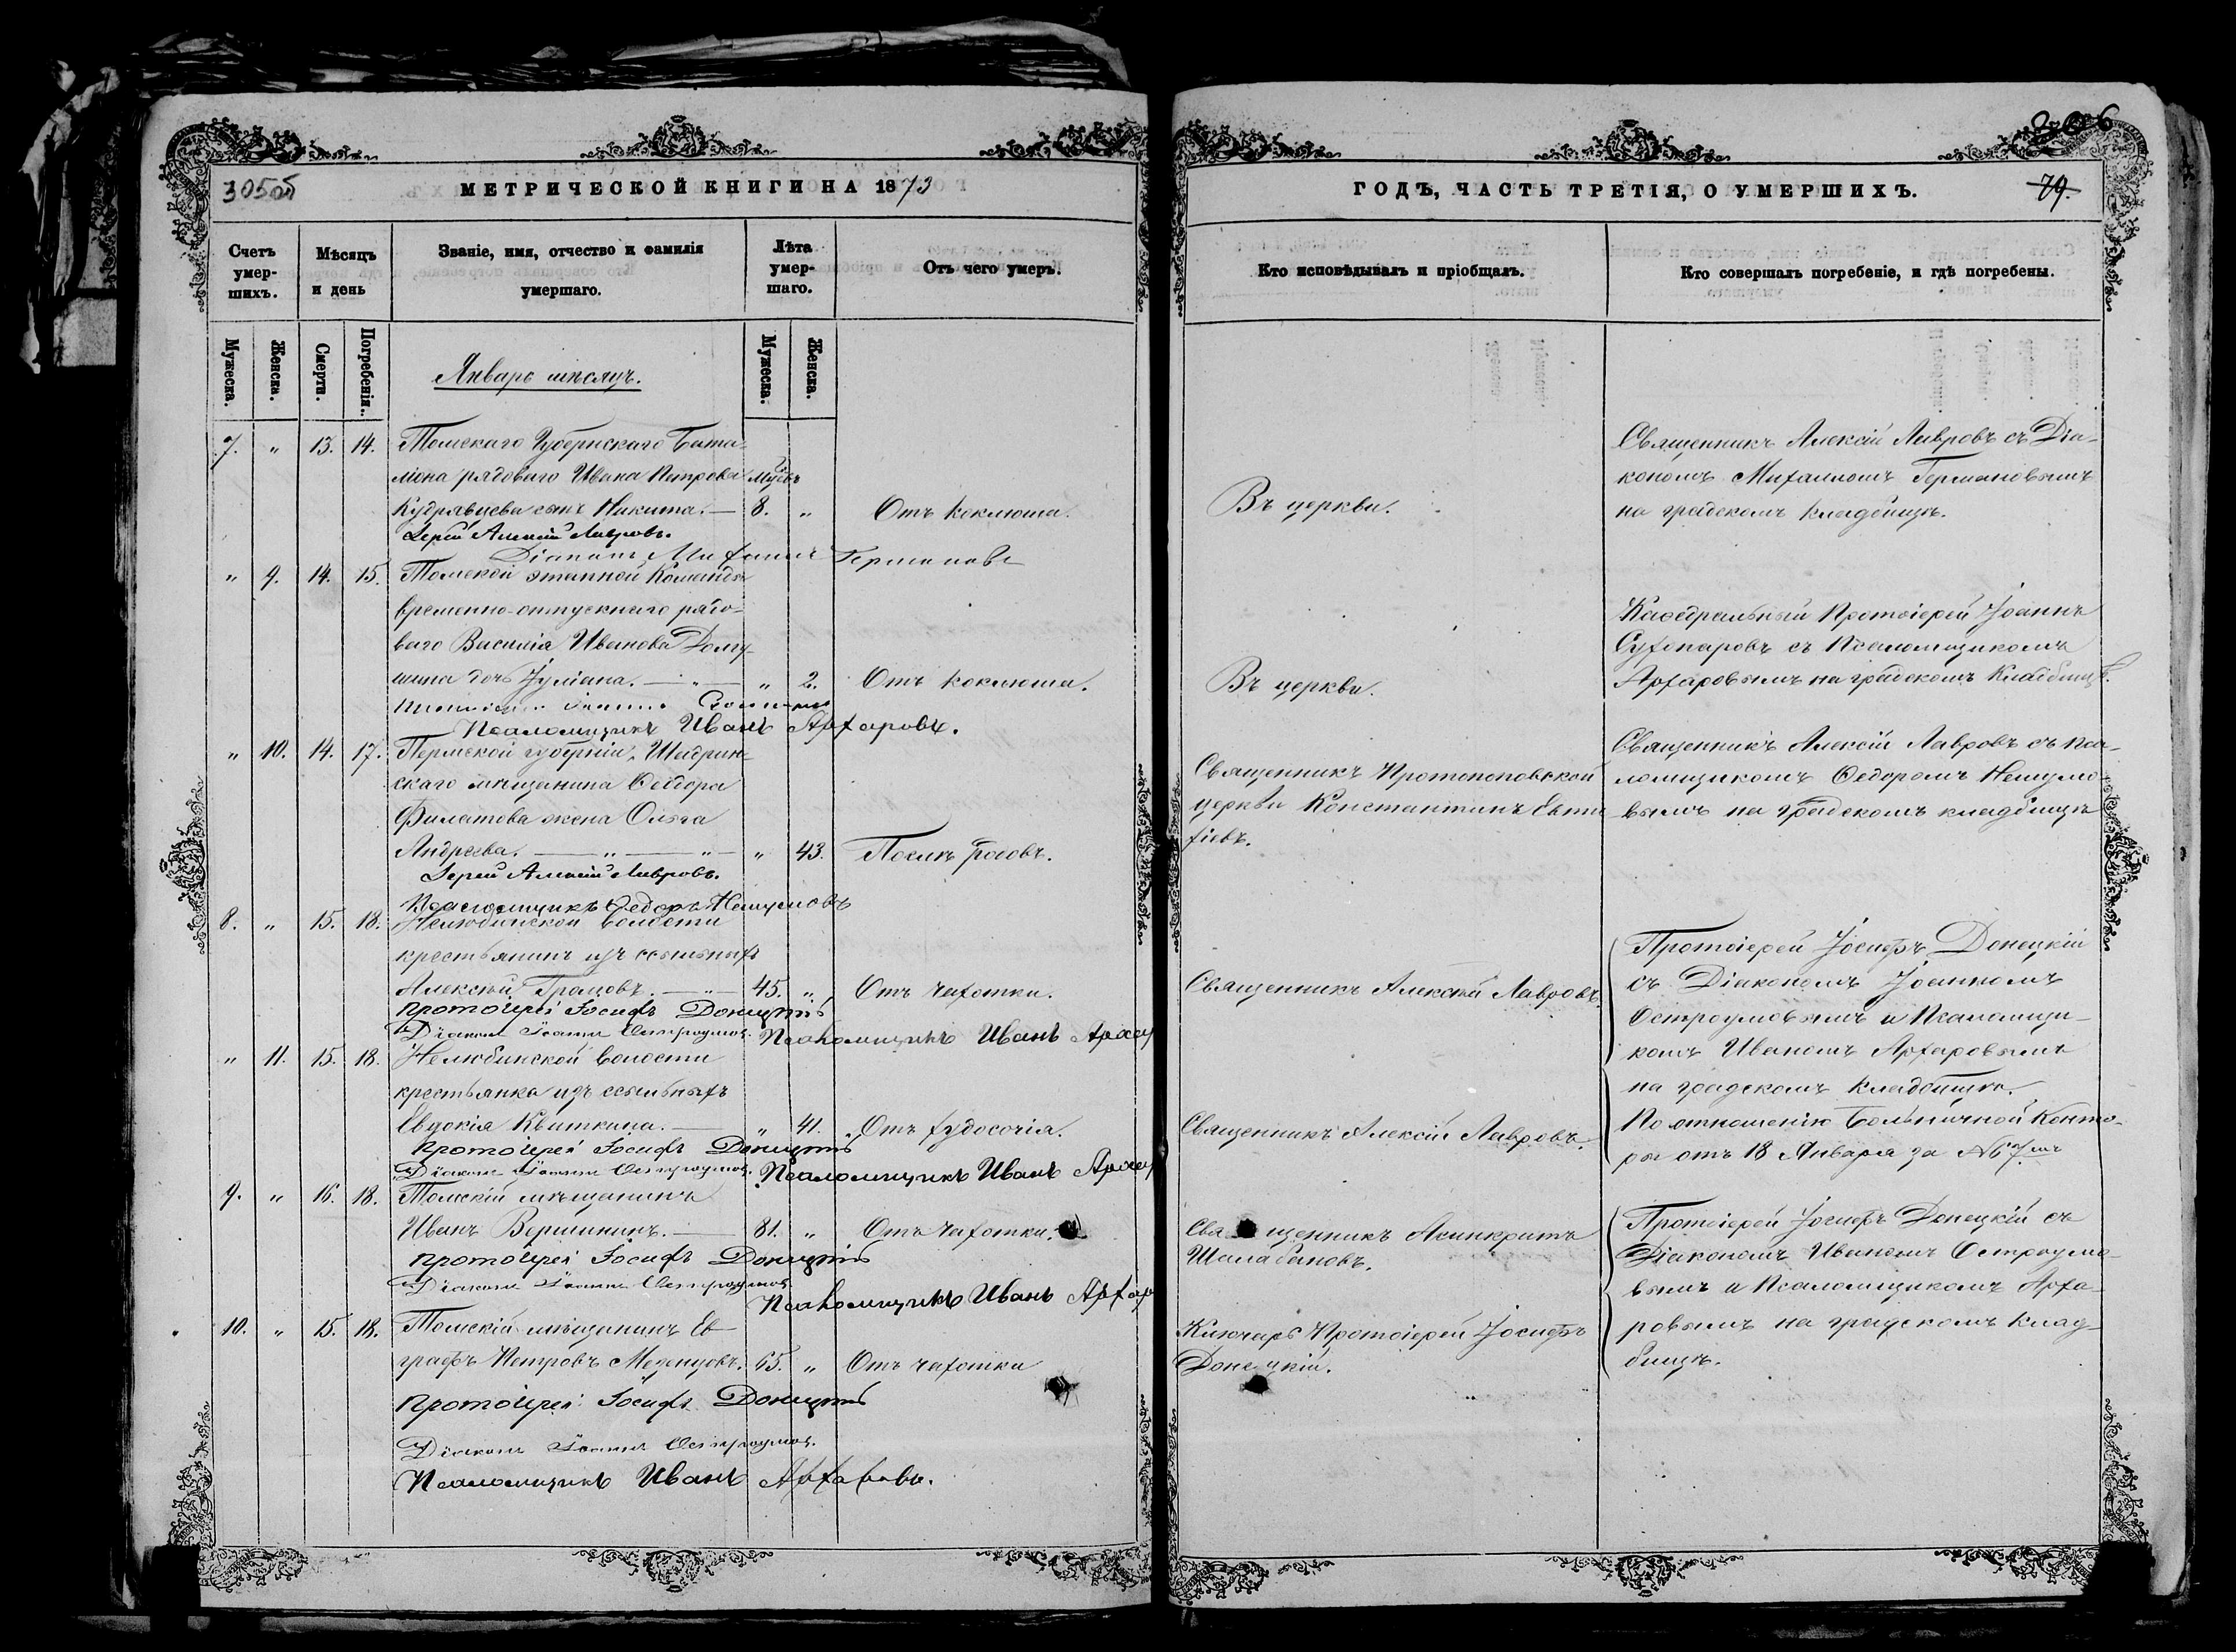 305об
МЕТРИЧЕСКОЙ КНИГИ НА 1873
Счетъ умер-шихъ.
Мѣсяцъ и день
Званіе, имя, отчество и фамилія умершаго.
Лѣта умер-шаго.
Отъ чего умеръ.
Мужеска.
Женска.
Смерти.
Погребенія.
Мужеска.
Женска.
Январь мѣсяцъ.
7. " 13. 14. Томскаго Губернскаго Бата-
ліона рядоваго Ивана Петрова
Кудрявцева сынъ Никита. — 8. " Отъ коклюша.
Іерей Алексій Лавровъ.
Діаконъ Михаилъ Германовъ
" 9. 14. 15. Томской этапной Команды
временно-отпускнаго рядо-
ваго Василія Иванова Долгу-
шина дочь Іуліана. — " — " 2. Отъ коклюша.
Псаломщикъ Иванъ Арфаровъ.
" 10. 14. 17. Пермской губерніи, Шадрин-
скаго мѣщанина Ѳеодора
Филатова жена Ольга
Андреева. — " — " — " 43. Послѣ родовъ.
Іерей Алексій Лавровъ.
Псаломщикъ Ѳедоръ Нешумовъ
8. " 15. 18. Нелюбинской волости
крестьянинъ изъ ссыльныхъ
Алексѣй Громовъ. — " — 45. " Отъ чахотки.
Протоіерей Іосифъ Донецкій
Діаконъ Іоаннъ Остроумов. Псаломщикъ Иванъ
" 11. 15. 18. Нелюбинской волости
крестьянка изъ ссыльныхъ
Евдокія Квиткина. — " 41. Отъ худосочія.
Протоіерей Іосифъ Донецкій
Діаконъ Іоаннъ Остроумов. Псаломщикъ Иванъ
9. " 16. 18. Томскій мѣщанинъ
Иванъ Вершининъ. — 81. " Отъ чахотки.
Протоіерей Іосифъ Донецкій
Діаконъ Іоаннъ Остроумов.
Псаломщикъ Иванъ Арфар
10. " 15. 18. Томскій мѣщанинъ Ев-
графъ Петровъ Мезенцовъ. 65. " Отъ чахотки
Протоіерей Іосифъ Донецкій
Діаконъ Іоаннъ Остроумов.
Псаломщикъ Иванъ Арфаровъ.
ГОДЪ, ЧАСТЬ ТРЕТІЯ, О УМЕРШИХЪ.
79.
Кто исповѣдывалъ и пріобщалъ.
Кто совершалъ погребеніе, и гдѣ погребены.
Въ церкви.
Священникъ Алексій Лавровъ съ Діа-
кономъ Михаиломъ Германовымъ
на градскомъ кладбищѣ.
Въ церкви.
Каѳедральный Протоіерей Іоаннъ
Сухопаровъ съ Псаломщикомъ
Арфаровымъ на градскомъ Кладбищѣ.
Священникъ Протопоповской
церкви Константинъ Евти
фіевъ.
Священникъ Алексій Лавровъ съ пса-
ломщикомъ Ѳедоромъ Нешумо-
вымъ на градскомъ кладбищѣ
Священникъ Алексѣй Лавровъ.
Протоіерей Іосифъ Донецкій
съ Діакономъ Іоанномъ
Остроумовымъ и Псаломщи-
комъ Иваномъ Арфаровымъ
на градскомъ кладбищѣ.
Священникъ Алексій Лавровъ.
По отношенію Больничной Конто-
ры отъ 18 Января за №
Священникъ Асинкритъ
Шалабановъ.
Протоіерей Іосифъ Донецкій съ
Діакономъ Иваномъ Остроумо-
вымъ и Псаломщикомъ Арфа-
ровымъ на градскомъ клад-
бищѣ.
Ключарь Протоіерей Іосифъ
Донецкій.